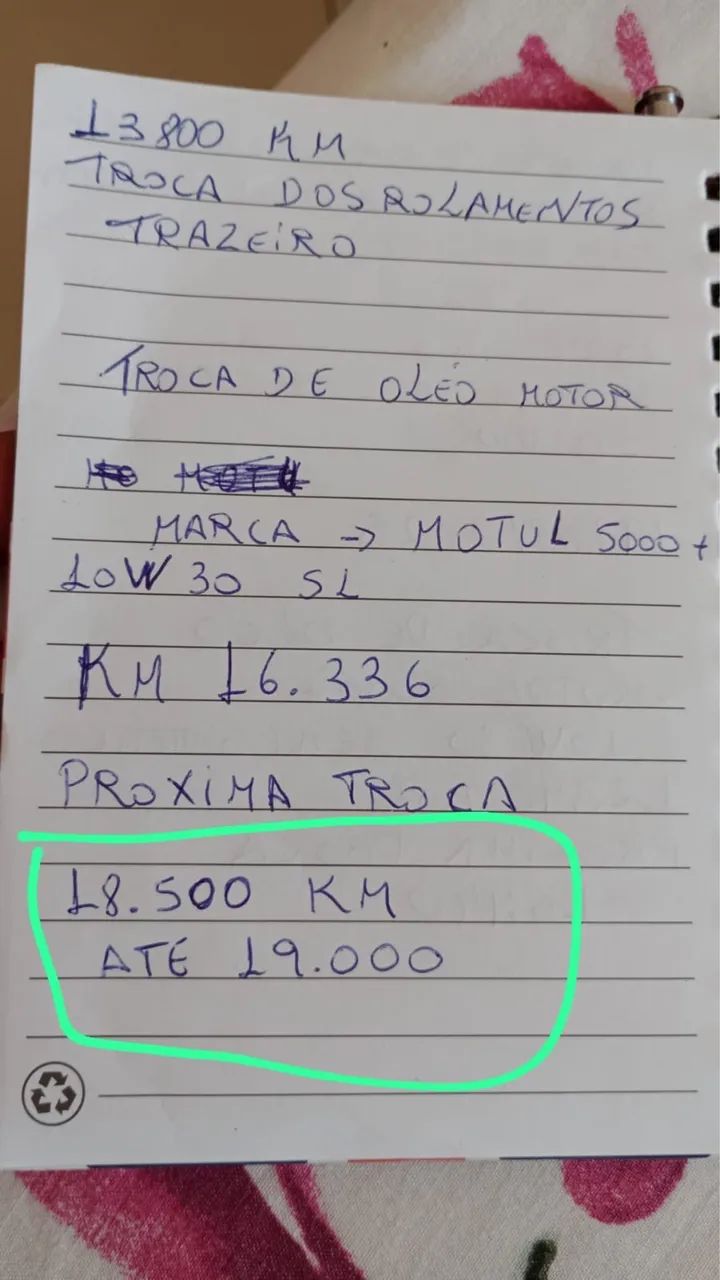 13800 KM
TROCA DOS ROLAMENTOS
TRAZEIRO
TROCA DE OLÉO MOTOR
MARCA → MOTUL 5000+
10W30 SL
KM 16.336
PROXIMA TROCA
18.500 KM
ATÉ 19.000